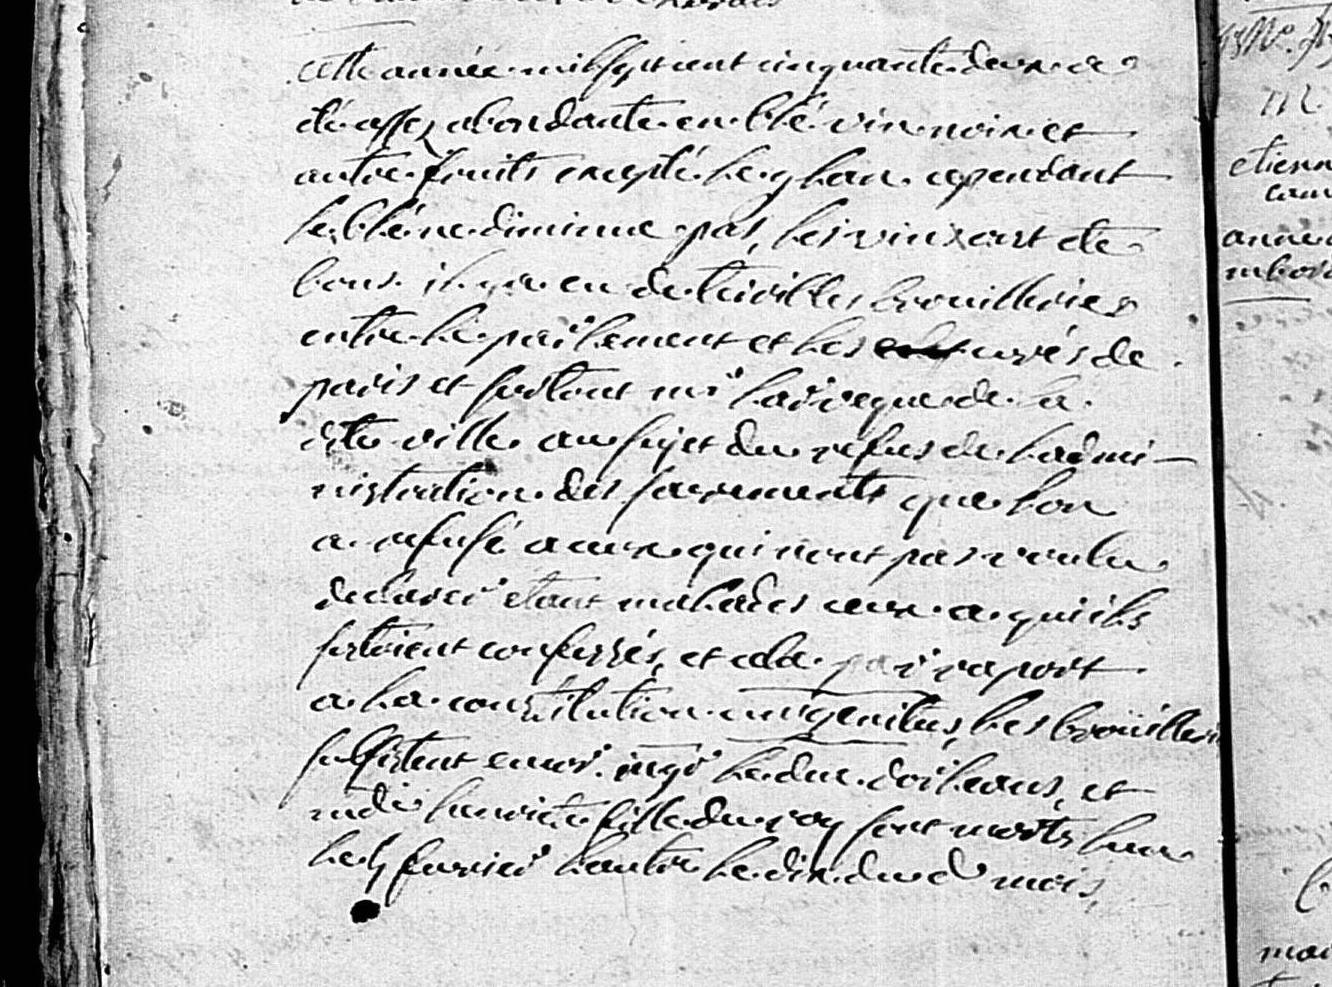 cette année mil sept cent cinquante deux a
été assez abondante en blé vin noix et
autre fruits excepté le glan cependant
le blé ne diminue pas, les vins ont été
bons. il y a eu de terribles brouilleries
entre le parlement et les curés de
paris et surtout mr l'arveque de la
dite ville au sujet du refus de l'admi-
nistration des sacrements que l'on
a refusé a ceux qui n'ont pas voulu
declarer etant malades ceux a qui ils
s'etoient confessés, et cela par raport
a la constitution unigenitus, les brouilleries
subsistent encor. mgr le duc d'orleans, et
mde henriete fille du roy sont morts l'un
le 4 fevrier l'autre le dix dud mois,
etienn
anne